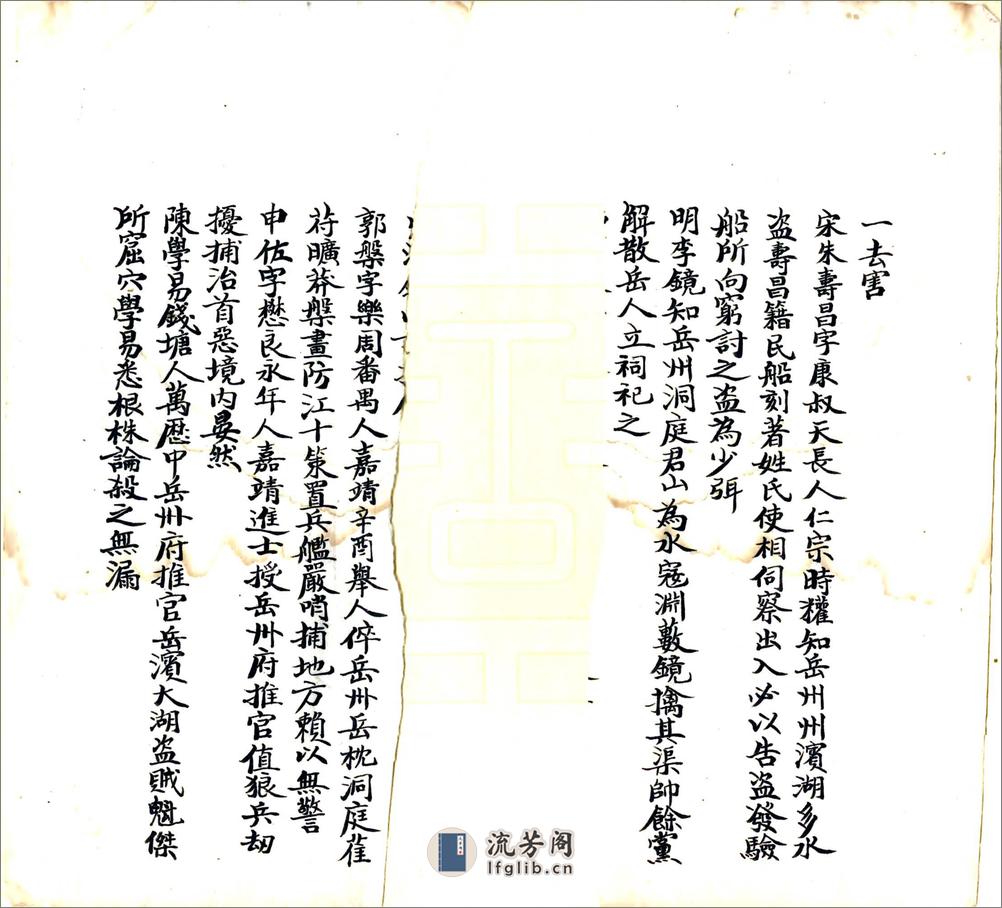 一去害
宋朱壽昌字康叔天長人仁宗時權知岳州州濱湖多水
盜壽昌籍民船刻著姓氏使相伺察出入必以告盜發驗
船所向窮討之盜為少弭
明李鏡知岳州洞庭君山為水寇淵藪鏡擒其渠帥餘黨
解散岳人立祠祀之
郭槃字樂周番禺人嘉靖辛酉舉人倅岳州岳枕洞庭萑
苻曠莽槃畫防江十策置兵艦嚴哨捕地方賴以無警
申佐字懋良永年人嘉靖進士授岳州府推官值狼兵刼
擾捕治首惡境内晏然
陳學易錢塘人萬曆中岳州府推官岳濱大湖盜賊魁傑
所窟穴學易悉根株論殺之無漏
流芳阁
lfglib.cn